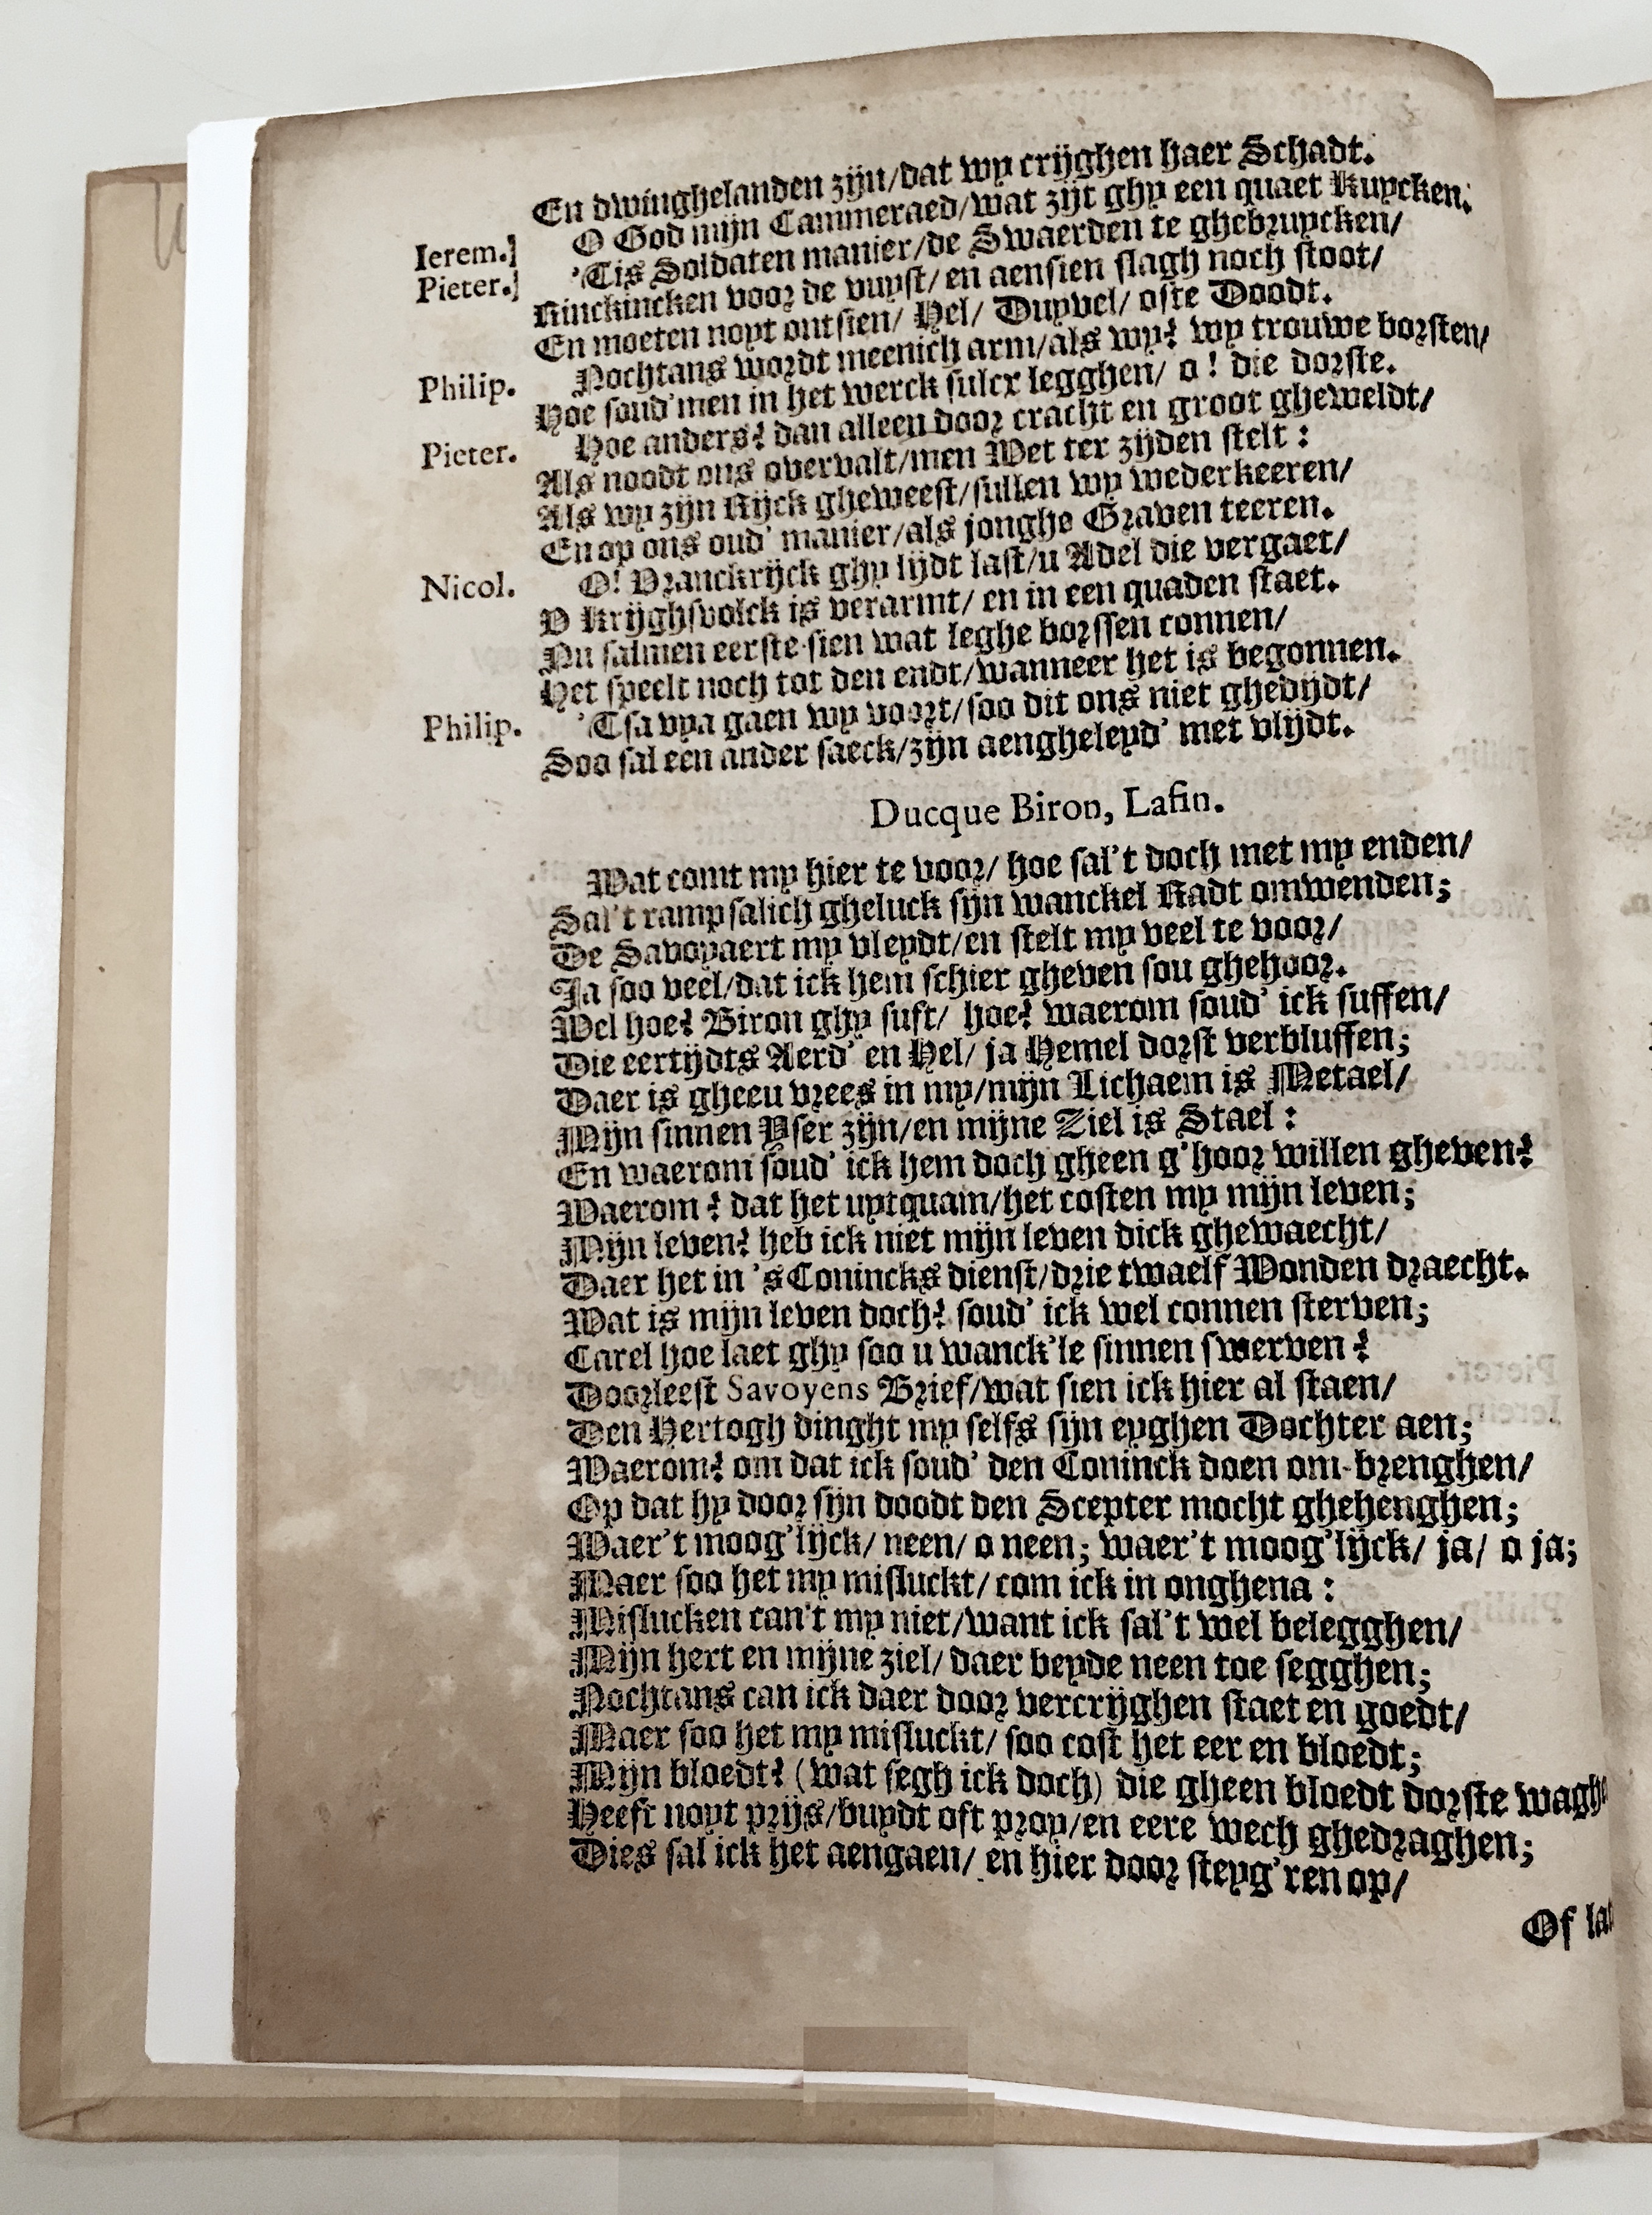 En dwinghelanden zijn/dat wy crijghen haer Schadt.
Ierem.] O God mijn Cammeraed/wat zijt ghy een quaet Kuycken.
Pieter.] 'Tis Soldaten manier/de Swaerden te ghebruycken/
Rinckincken voor de vuyst/en aensien slagh noch stoot/
En moeten noyt ontsien/ Hel/ Duyvel/ ofte Doodt.
Philip. Nochtans wordt meenich arm/als wy? wy trouwe borsten/
Hoe soud'men in het werck sulcx legghen/ o! die dorste.
Pieter. Hoe anders? dan alleen door cracht en groot gheweldt/
Als noodt ons overvalt/men Wet ter zijden stelt:
Als wy zijn Rijck gheweest/sullen wy wederkeeren/
En op ons oud' manier/als jonghe Graven teeren.
Nicol. O! Vranckrijck ghy lijdt last/u Adel die vergaet/
V Krijghsvolck is verarmt/ en in een quaden staet.
Nu salmen eerste sien wat leghe borssen connen/
Het speelt noch tot den endt/wanneer het is begonnen.
Philip. 'Tsa vya gaen wy voort/soo dit ons niet ghedijdt/
Soo sal een ander saeck/zijn aengheleyd' met vlijdt.
Ducque Biron, Lafin.
Wat comt my hier te voor/ hoe sal't doch met my enden/
Sal't rampsalich gheluck sijn wanckel Radt omwenden;
De Savoyaert my vleydt/en stelt my veel te voor/
Ja soo veel/dat ick hem schier gheven sou ghehoor.
Wel hoe? Biron ghy suft/ hoe? waerom soud' ick suffen/
Die eertijdts Aerd' en Hel/ ja Hemel dorst verbluffen;
Daer is gheeu vrees in my/mijn Lichaem is Metael/
Mijn sinnen Yser zijn/en mijne Ziel is Stael:
En waerom soud' ick hem doch gheen g'hoor willen gheven?
Waerom? dat het uytquam/het costen my mijn leven;
Mijn leven? heb ick niet mijn leven dick ghewaecht/
Daer het in 'sConincks dienst/drie twaelf Wonden draecht.
Wat is mijn leven doch? soud' ick wel connen sterven;
Carel hoe laet ghy soo u wanck'le sinnen swerven?
Doorleest Savoyens Brief/wat sien ick hier al staen/
Den Hertogh dinght my selfs sijn eyghen Dochter aen;
Waerom? om dat ick soud' den Coninck doen om-brenghen/
Op dat hy door sijn doodt den Scepter mocht ghehenghen;
Waer't moog'lijck/ neen/ o neen; waer't moog'lijck/ ja/ o ja;
Maer soo het my misluckt/ com ick in onghena:
Mislucken can't my niet/want ick sal't wel belegghen/
Mijn hert en mijne ziel/ daer beyde neen toe segghen;
Nochtans can ick daer door vercrijghen staet en goedt/
Maer soo het my misluckt/ soo cost het eer en bloedt;
Mijn bloedt? (wat segh ick doch) die gheen bloedt dorste wagh
Heeft noyt prijs/buydt oft proy/en eere wech ghedraghen;
Dies sal ick het aengaen/ en hier door steyg'ren op/
Of la